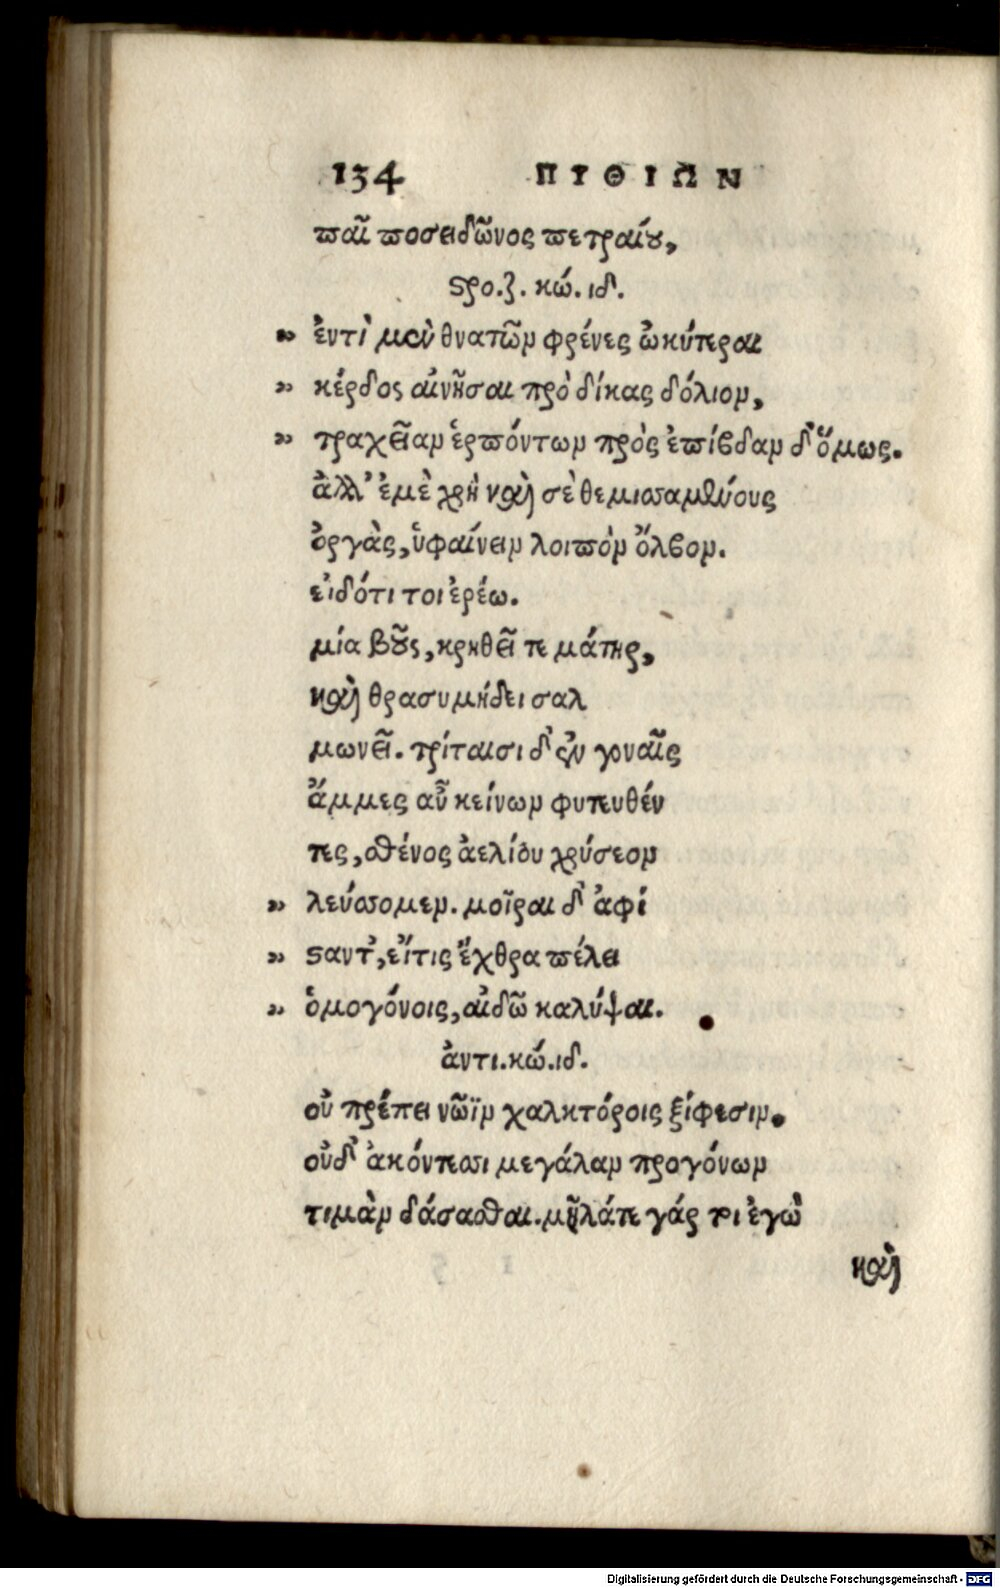 134 ΠΥΘΙΩΝ
παῖ ποσειδῶνος πετραίου,
στρο.ζ. κώ.ιδ.
» ἐντὶ μὲν θνατῶν φρένες ὠκύτεραι
» κέρδος αἰνῆσαι πρὸ δίκας δόλιον,
» τραχεῖαν ἑρπόντων πρὸς ἐπίβδαν δ' ὅμως.
ἀλλ' ἐμὲ χρὴ καὶ σὲ θεμισσαμένους
ὀργὰς, ὑφαίνειν λοιπὸν ὄλβον.
εἰδότι τοι ἐρέω.
μία βοῦς, κρηθεῖ τε μάτηρ,
καὶ θρασυμήδει σαλ
μωνεῖ. τρίταισι δ' ἐν γοναῖς
ἄμμες αὖ κείνων φυτευθέν
τες, σθένος ἀελίου χρύσεον
» λεύσσομεν. μοῖραι δ' ἀφί
» σταντ', εἴτις ἔχθρα πέλει
» ὁμογόνοις, αἰδῶ καλύψαι.
ἀντι.κώ.ιδ.
οὐ πρέπει νῶϊν χαλκτόροις ξίφεσιν.
οὐδ' ἀκόντεσσι μεγάλαν προγόνων
τιμὰν δάσασθαι. μῆλάτε γάρ τοι ἐγὼ
καὶ
Digitalisierung gefördert durch die Deutsche Forschungsgemeinschaft - DFG